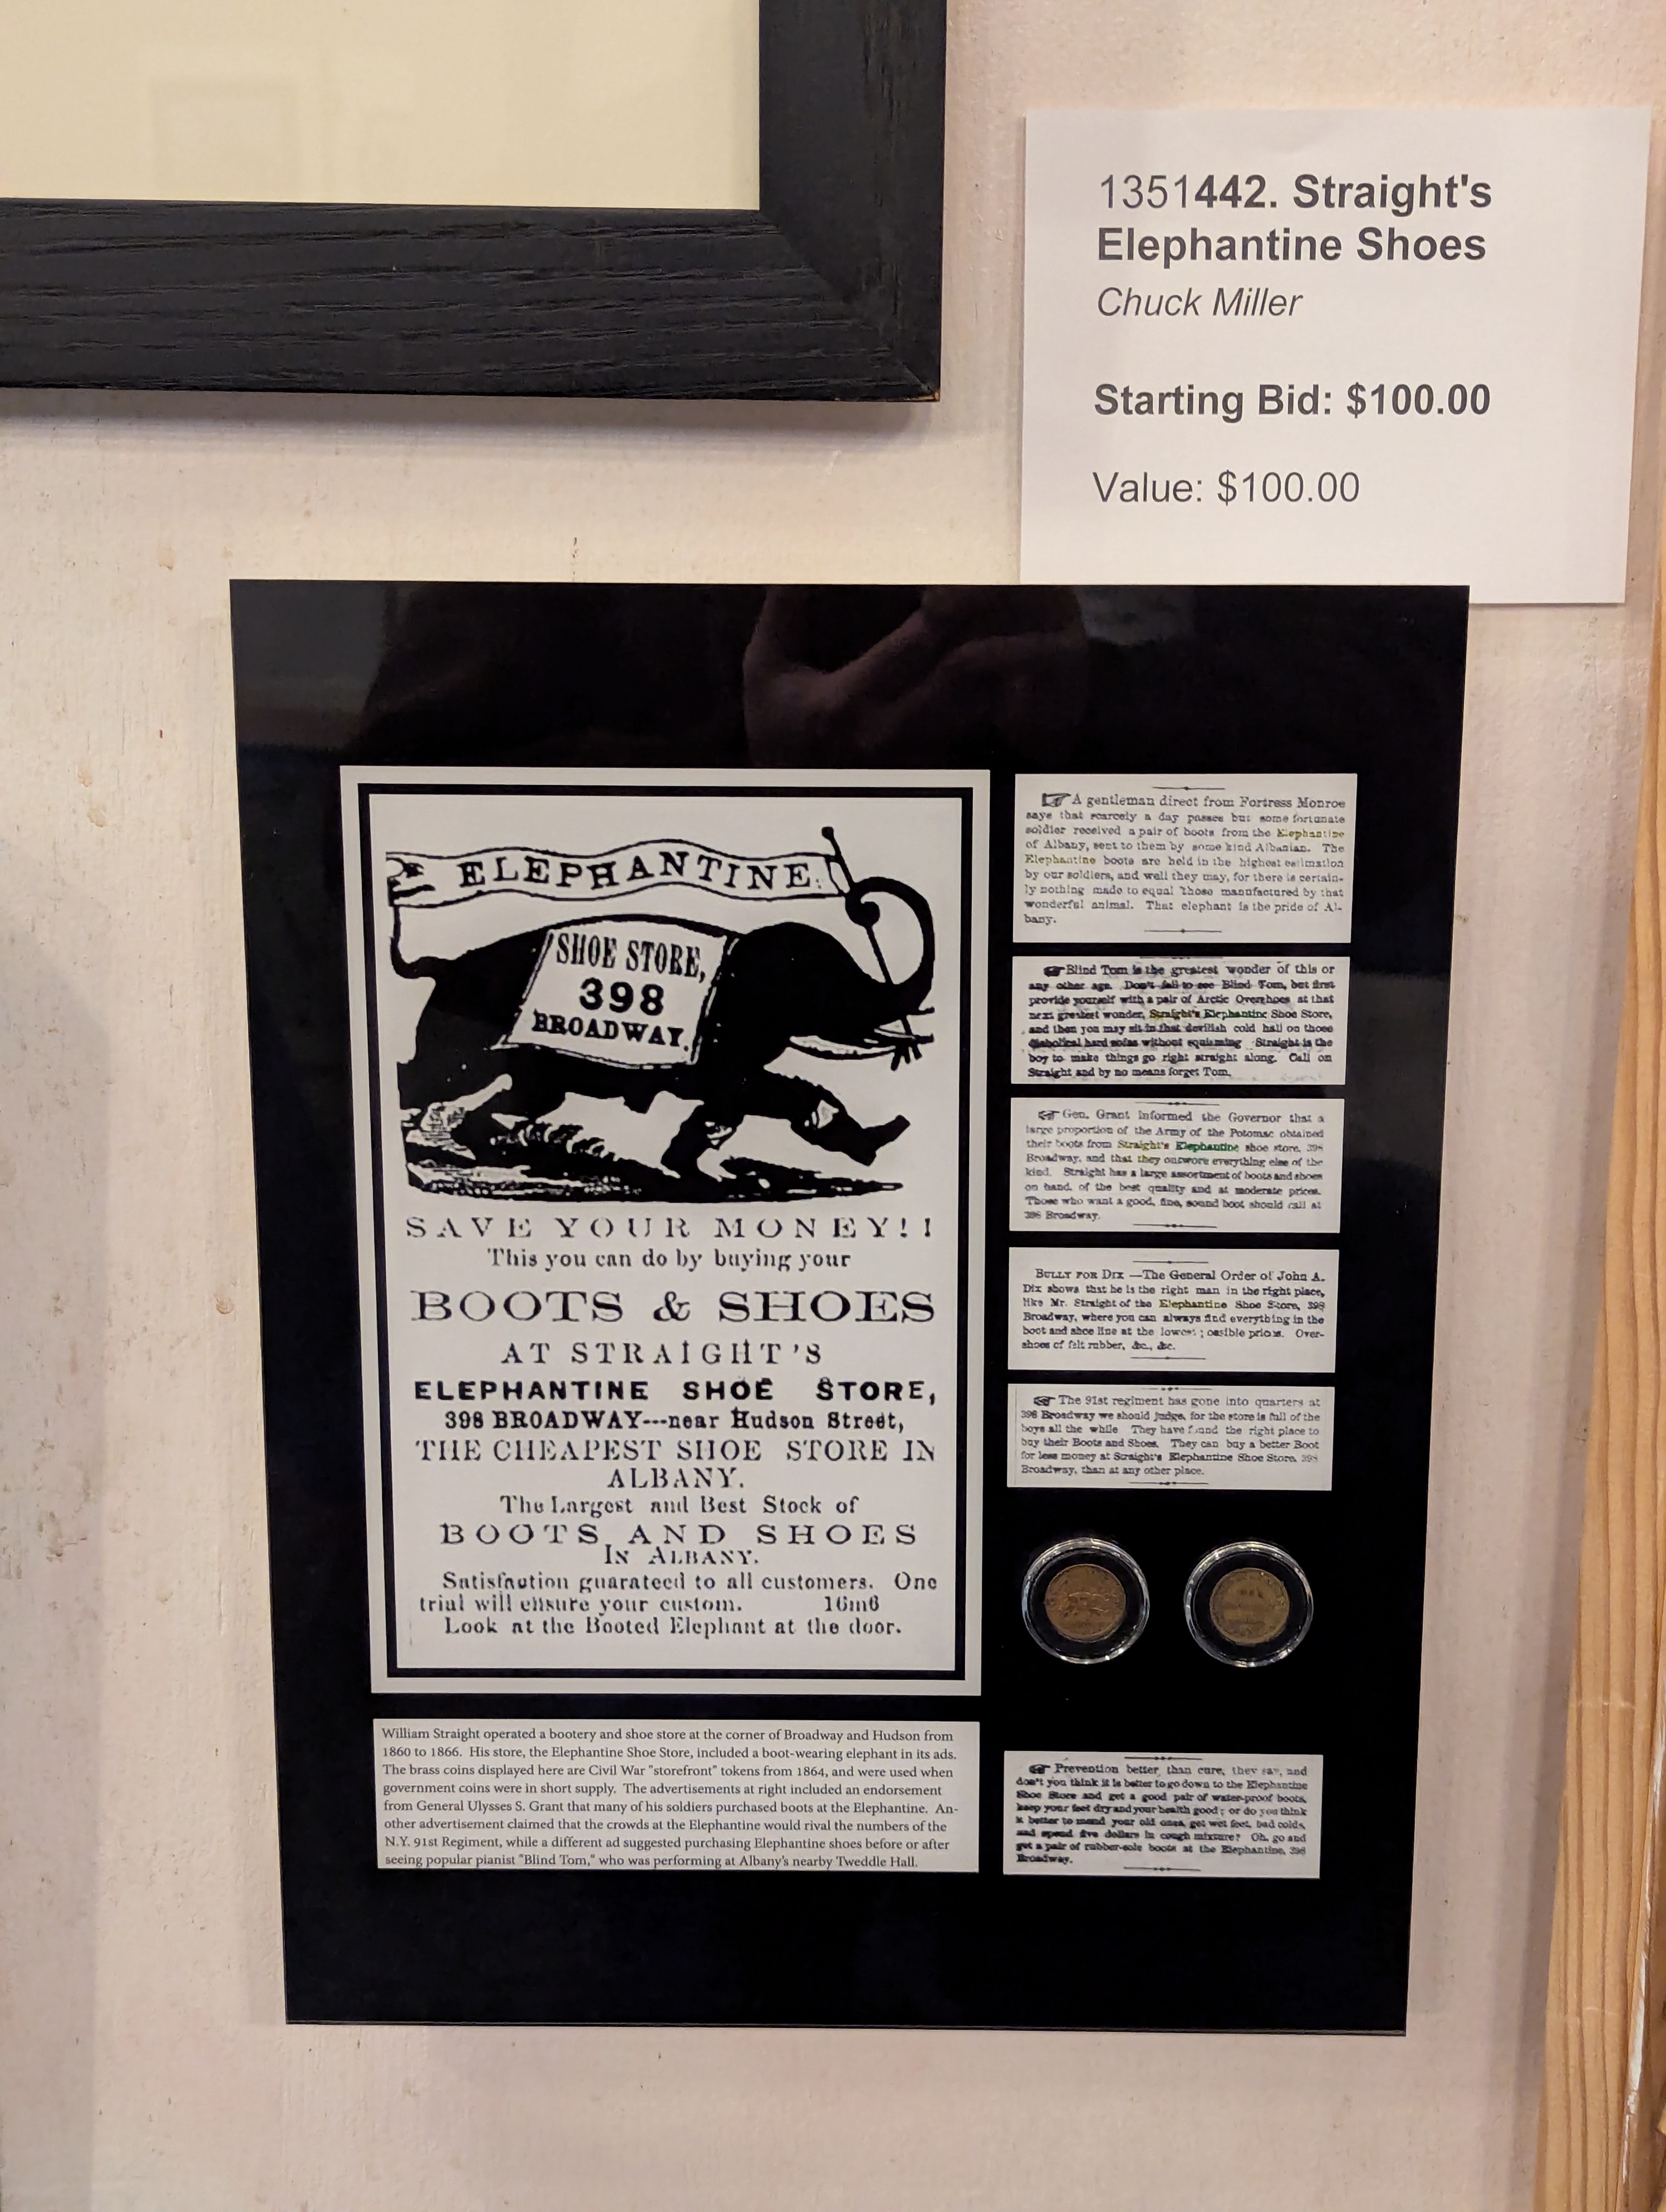 1351442. Straight's
Elephantine Shoes
Chuck Miller
Starting Bid: $100.00
Value: $100.00
ELEPHANTINE
SHOE STORE,
398
BROADWAY.
SAVE YOUR MONEY!!
This you can do by buying your
BOOTS & SHOES
AT STRAIGHT'S
ELEPHANTINE SHOE STORE,
398 BROADWAY---near Hudson Street,
THE CHEAPEST SHOE STORE IN
ALBANY.
The Largest and Best Stock of
BOOTS AND SHOES
IN ALBANY.
Satisfaction guarateed to all customers. One
trial will ensure your custom. 16m6
Look at the Booted Elephant at the door.
William Straight operated a bootery and shoe store at the corner of Broadway and Hudson from
1860 to 1866. His store, the Elephantine Shoe Store, included a boot-wearing elephant in its ads.
The brass coins displayed here are Civil War "storefront" tokens from 1864, and were used when
government coins were in short supply. The advertisements at right included an endorsement
from General Ulysses S. Grant that many of his soldiers purchased boots at the Elephantine. An-
other advertisement claimed that the crowds at the Elephantine would rival the numbers of the
N.Y. 91st Regiment, while a different ad suggested purchasing Elephantine shoes before or after
seeing popular pianist "Blind Tom," who was performing at Albany's nearby Tweddle Hall.
A gentleman direct from Fortress Monroe
says that scarcely a day passes but some fortunate
soldier received a pair of boots from the Elephantine
of Albany, sent to them by some kind Albanian. The
Elephantine boots are held in the highest estimation
by our soldiers, and well they may, for there is certain-
ly nothing made to equal those manufactured by that
wonderful animal. That elephant is the pride of Al-
bany.
Blind Tom is the greatest wonder of this or
any other age. Don't fail to see Blind Tom, but first
provide yourself with a pair of Arctic Overshoes at that
next greatest wonder, Straight's Elephantine Shoe Store,
and then you may sit in that devilish cold hall on those
diabolical hard sofas without squirming Straight is the
boy to make things go right straight along. Call on
Straight and by no means forget Tom.
Gen. Grant informed the Governor that a
large proportion of the Army of the Potomac obtained
their boots from Straight's Elephantine shoe store, 398
Broadway, and that they outwore everything else of the
kind. Straight has a large assortment of boots and shoes
on hand, of the best quality and at moderate prices.
Those who want a good, fine, sound boot should call at
398 Broadway.
BULLY FOR DIX —The General Order of John A.
Dix shows that he is the right man in the right place,
like Mr. Straight of the Elephantine Shoe Store, 398
Broadway, where you can always find everything in the
boot and shoe line at the lowest possible prices. Over-
shoes of felt rubber, &c., &c.
The 91st regiment has gone into quarters at
398 Broadway we should judge, for the store is full of the
boys all the while They have found the right place to
buy their Boots and Shoes. They can buy a better Boot
for less money at Straight's Elephantine Shoe Store, 398
Broadway, than at any other place.
Prevention better than cure, they say, and
don't you think it is better to go down to the Elephantine
Shoe Store and get a good pair of water-proof boots,
keep your feet dry and your health good; or do you think
it better to mend your old ones, get wet feet, bad colds,
and spend five dollars in cough mixture? Oh, go and
get a pair of rubber-sole boots at the Elephantine, 398
Broadway.